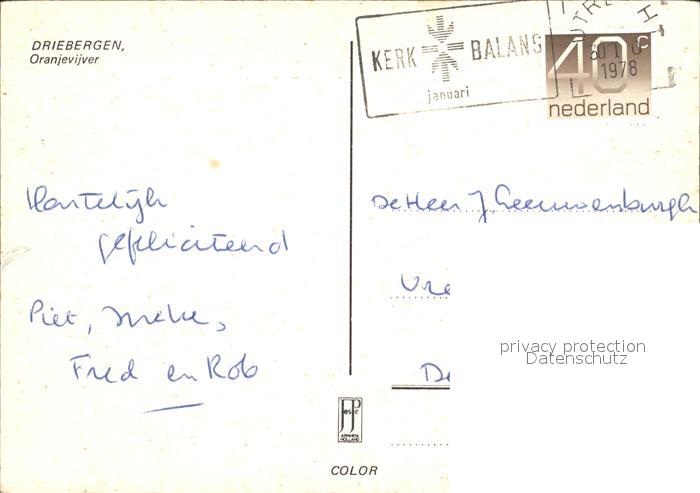 DRIEBERGEN,
Oranjevijver
KERK BALANS
januari
1978
40c
nederland
Hartelijk
gefeliciteerd
Piet, Ineke,
Fred en Rob
De Heer J. Leeuwenburgh
Vre
De
privacy protection
Datenschutz
COLOR